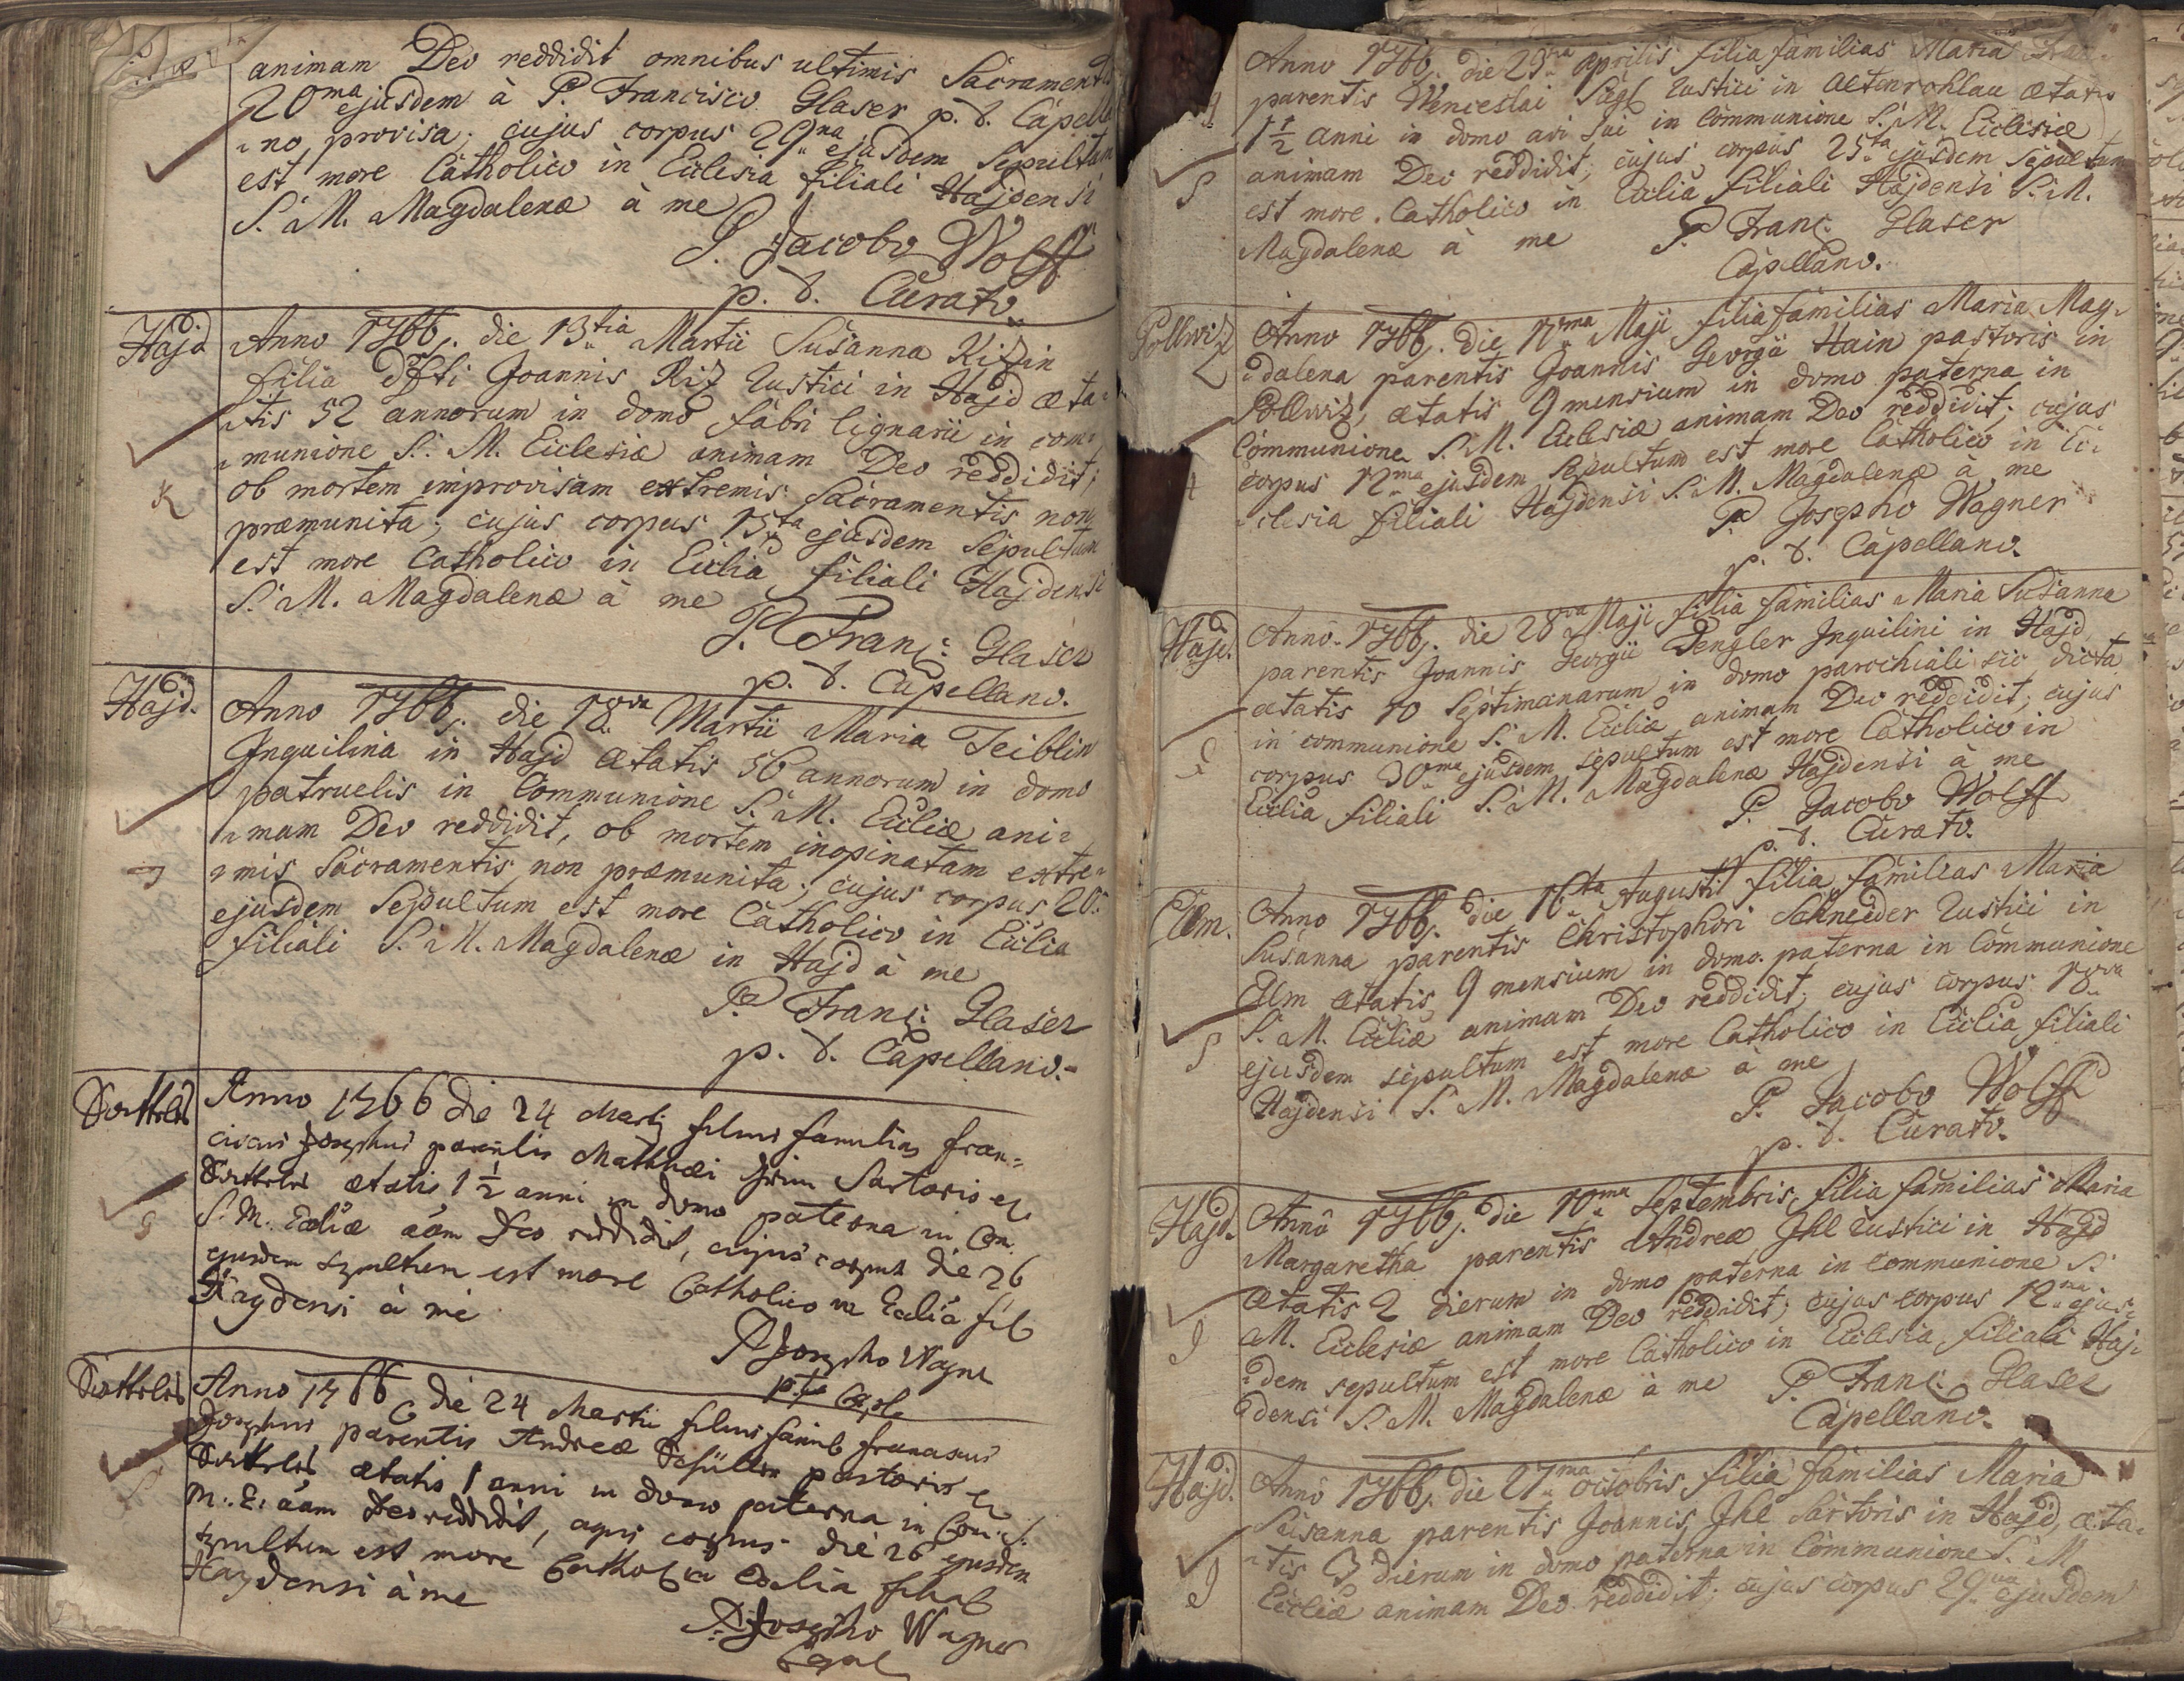 animam Deo reddidit omnibus ultimis Sacramentis
20ma ejusdem à P. Francisco Glaser p. t. Capella
no provisa; cujus corpus 29na ejusdem Sepultum
est more Catholico in Ecclesia filiali Hajdensi
S. M. Magdalenæ à me
P. Jacobo Wolff
p. t. Curato.
Hajd
Anno 1766. die 13tia Martii Susanna Rizin
filia dfti Joannis Riz Rustici in Hajd æta-
tis 52 annorum in domo fabri lignarii in com-
munione S. M. Ecclesiæ animam Deo reddidit;
ob mortem improvisam extremis Sacramentis non
præmunita; cujus corpus 15ta ejusdem Sepultum
est more Catholico in Ecclia filiali Hajdensi
S. M. Magdalenæ à me
P. Franc: Glaser
p. t. Capellano.
K
Hajd.
Anno 1766. die 18va Martii Maria Teiblin
Inquilina in Hajd ætatis 56 annorum in domo
patruelis in Communione S. M. Eccliæ ani-
mam Deo reddidit, ob mortem inopinatam extre-
mis Sacramentis non præmunita; cujus corpus 20.
ejusdem Sepultum est more Catholico in Ecclia
filiali S. M. Magdalenæ in Hajd à me
P. Franc: Glaser
p. t. Capellano.
Anno 1766 die 24 Martij filius familias Fran=
ciscus Josephus parentis Matthæi Grim Sartoris ex
ætatis 1 1/2 anni in domo paterna in Com.
S. M. Eccliæ aãm Deo reddidit, cujus corpus die 26
ejusdem sepultum est more Catholico in Ecclia fil
Haydensi à me
P Josepho Wagner
p t Capl
G
Anno 1766 die 24 Martii filius famil Franciscus
Josephus parentis Andreæ pastoris ex
ætatis 1 anni in domo paterna in Com. S.
M. E. aãm Deo reddidit, cujus corpus die 26 ejusdem
sepultum est more Cathol in Ecclia filiali
Haydensi à me
P. Josepho Wagner
Capel
Anno 1766. die 23tia Aprilis filia familias Maria
parentis Wenceslai Sügl Rustici in Altenrohlau ætatis
1 1/2 anni in domo avi sui in Communione S. M. Ecclesiæ
animam Deo reddidit; cujus corpus 25ta ejusdem Sepultum
est more Catholico in Ecclia filiali Hajdensi S. M.
Magdalenæ à me P. Franc. Glaser
Capellano.
S
Pollwiz
Anno 1766. die 11ma Maji filia familias Maria Mag-
dalena parentis Joannis Georgii Hain pastoris in
Pollwiz, ætatis 9 mensium in domo paterna in
Communione S. M. Ecclesiæ animam Deo reddidit; cujus
corpus 12ma ejusdem Sepultum est more Catholico in Ec-
clesia filiali Hajdensi S. M. Magdalenæ à me
P. Josepho Wagner
p. t. Capellano.
Hajd.
Anno 1766. die 28va Maji filia familias Maria Susanna
parentis Joannis Georgii Dengler Inquilini in Hajd
ætatis 10 Septimanarum in domo parochiali sic dicta
in communione S. M. Eccliæ animam Deo reddidit; cujus
corpus 30ma ejusdem sepultum est more Catholico in
Ecclia filiali S. M. Magdalenæ Hajdensi à me
P. Jacobo Wolff
p. t. Curato.
Elm.
Anno 1766. die 16ta Augusti filia familias Maria
Susanna parentis Christophori Schneider Rustici in
Elm ætatis 9 mensium in domo paterna in Communione
S. M. Eccliæ animam Deo reddidit; cujus corpus 18va
ejusdem sepultum est more Catholico in Ecclia filiali
Hajdensi S. M. Magdalenæ à me
P. Jacobo Wolff
p. t. Curato.
S
Hajd.
Anno 1766. die 10ma Septembris filia familias Maria
Margaretha parentis Andreæ Ihl Rustici in Hajd
ætatis 2 dierum in domo paterna in Communione S.
M. Ecclesiæ animam Deo reddidit; cujus corpus 12ma ejus-
dem sepultum est more Catholico in Ecclesia filiali Haj-
densi S. M. Magdalenæ à me P. Franc. Glaser
Capellano.
J
Hajd.
Anno 1766. die 27ma octobris filia familias Maria
Susanna parentis Joannis Ihl Sartoris in Hajd, æta-
tis 3 dierum in domo paterna in Communione S. M.
Eccliæ animam Deo reddidit; cujus corpus 29na ejusdem
J